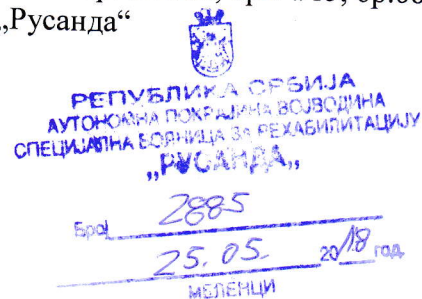 „Русанда“
РЕПУБЛИКА СРБИЈА
АУТОНОМНА ПОКРАЈИНА ВОЈВОДИНА
СПЕЦИЈАЛНА БОЛНИЦА ЗА РЕХАБИЛИТАЦИЈУ
„РУСАНДА„
Број 2885
25. 05. 2018 год.
МЕЛЕНЦИ